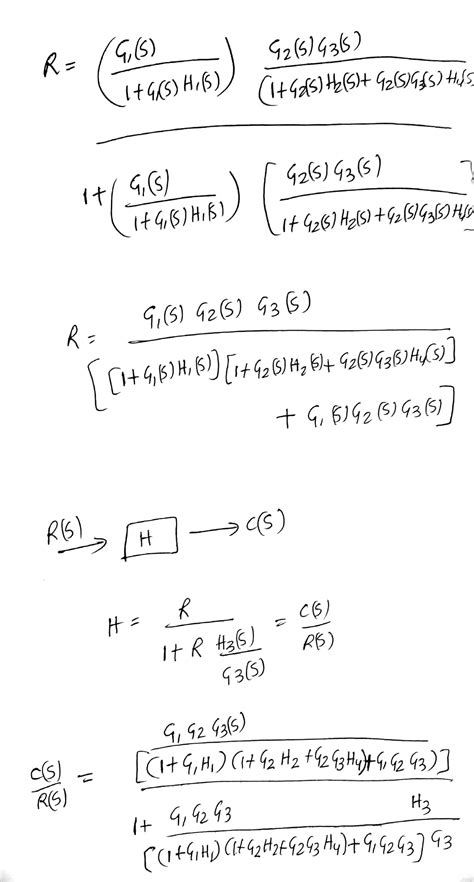 R = (G₁(S) / 1+G₁(S) H₁(S)) G₂(S) G₃(S) / (1+G₂(S) H₂(S) + G₂(S) G₃(S) H₄(S
1 + (G₁(S) / 1+G₁(S) H₁(S)) [G₂(S) G₃(S) / 1+G₂(S) H₂(S) + G₂(S) G₃(S) H₄(S
R = G₁(S) G₂(S) G₃(S)
[[1+G₁(S) H₁(S)] [1+G₂(S) H₂(S) + G₂(S) G₃(S) H₄(S)]
+ G₁(S) G₂(S) G₃(S)]
R(S) → H → C(S)
H = R / 1+R H₃(S)/G₃(S) = C(S)/R(S)
C(S)/R(S) = G₁ G₂ G₃(S)
[(1+G₁H₁) (1+G₂H₂ + G₂G₃H₄) + G₁G₂G₃)]
1 + G₁ G₂ G₃ H₃
[(1+G₁H₁) (1+G₂H₂ + G₂G₃H₄) + G₁G₂G₃] G₃